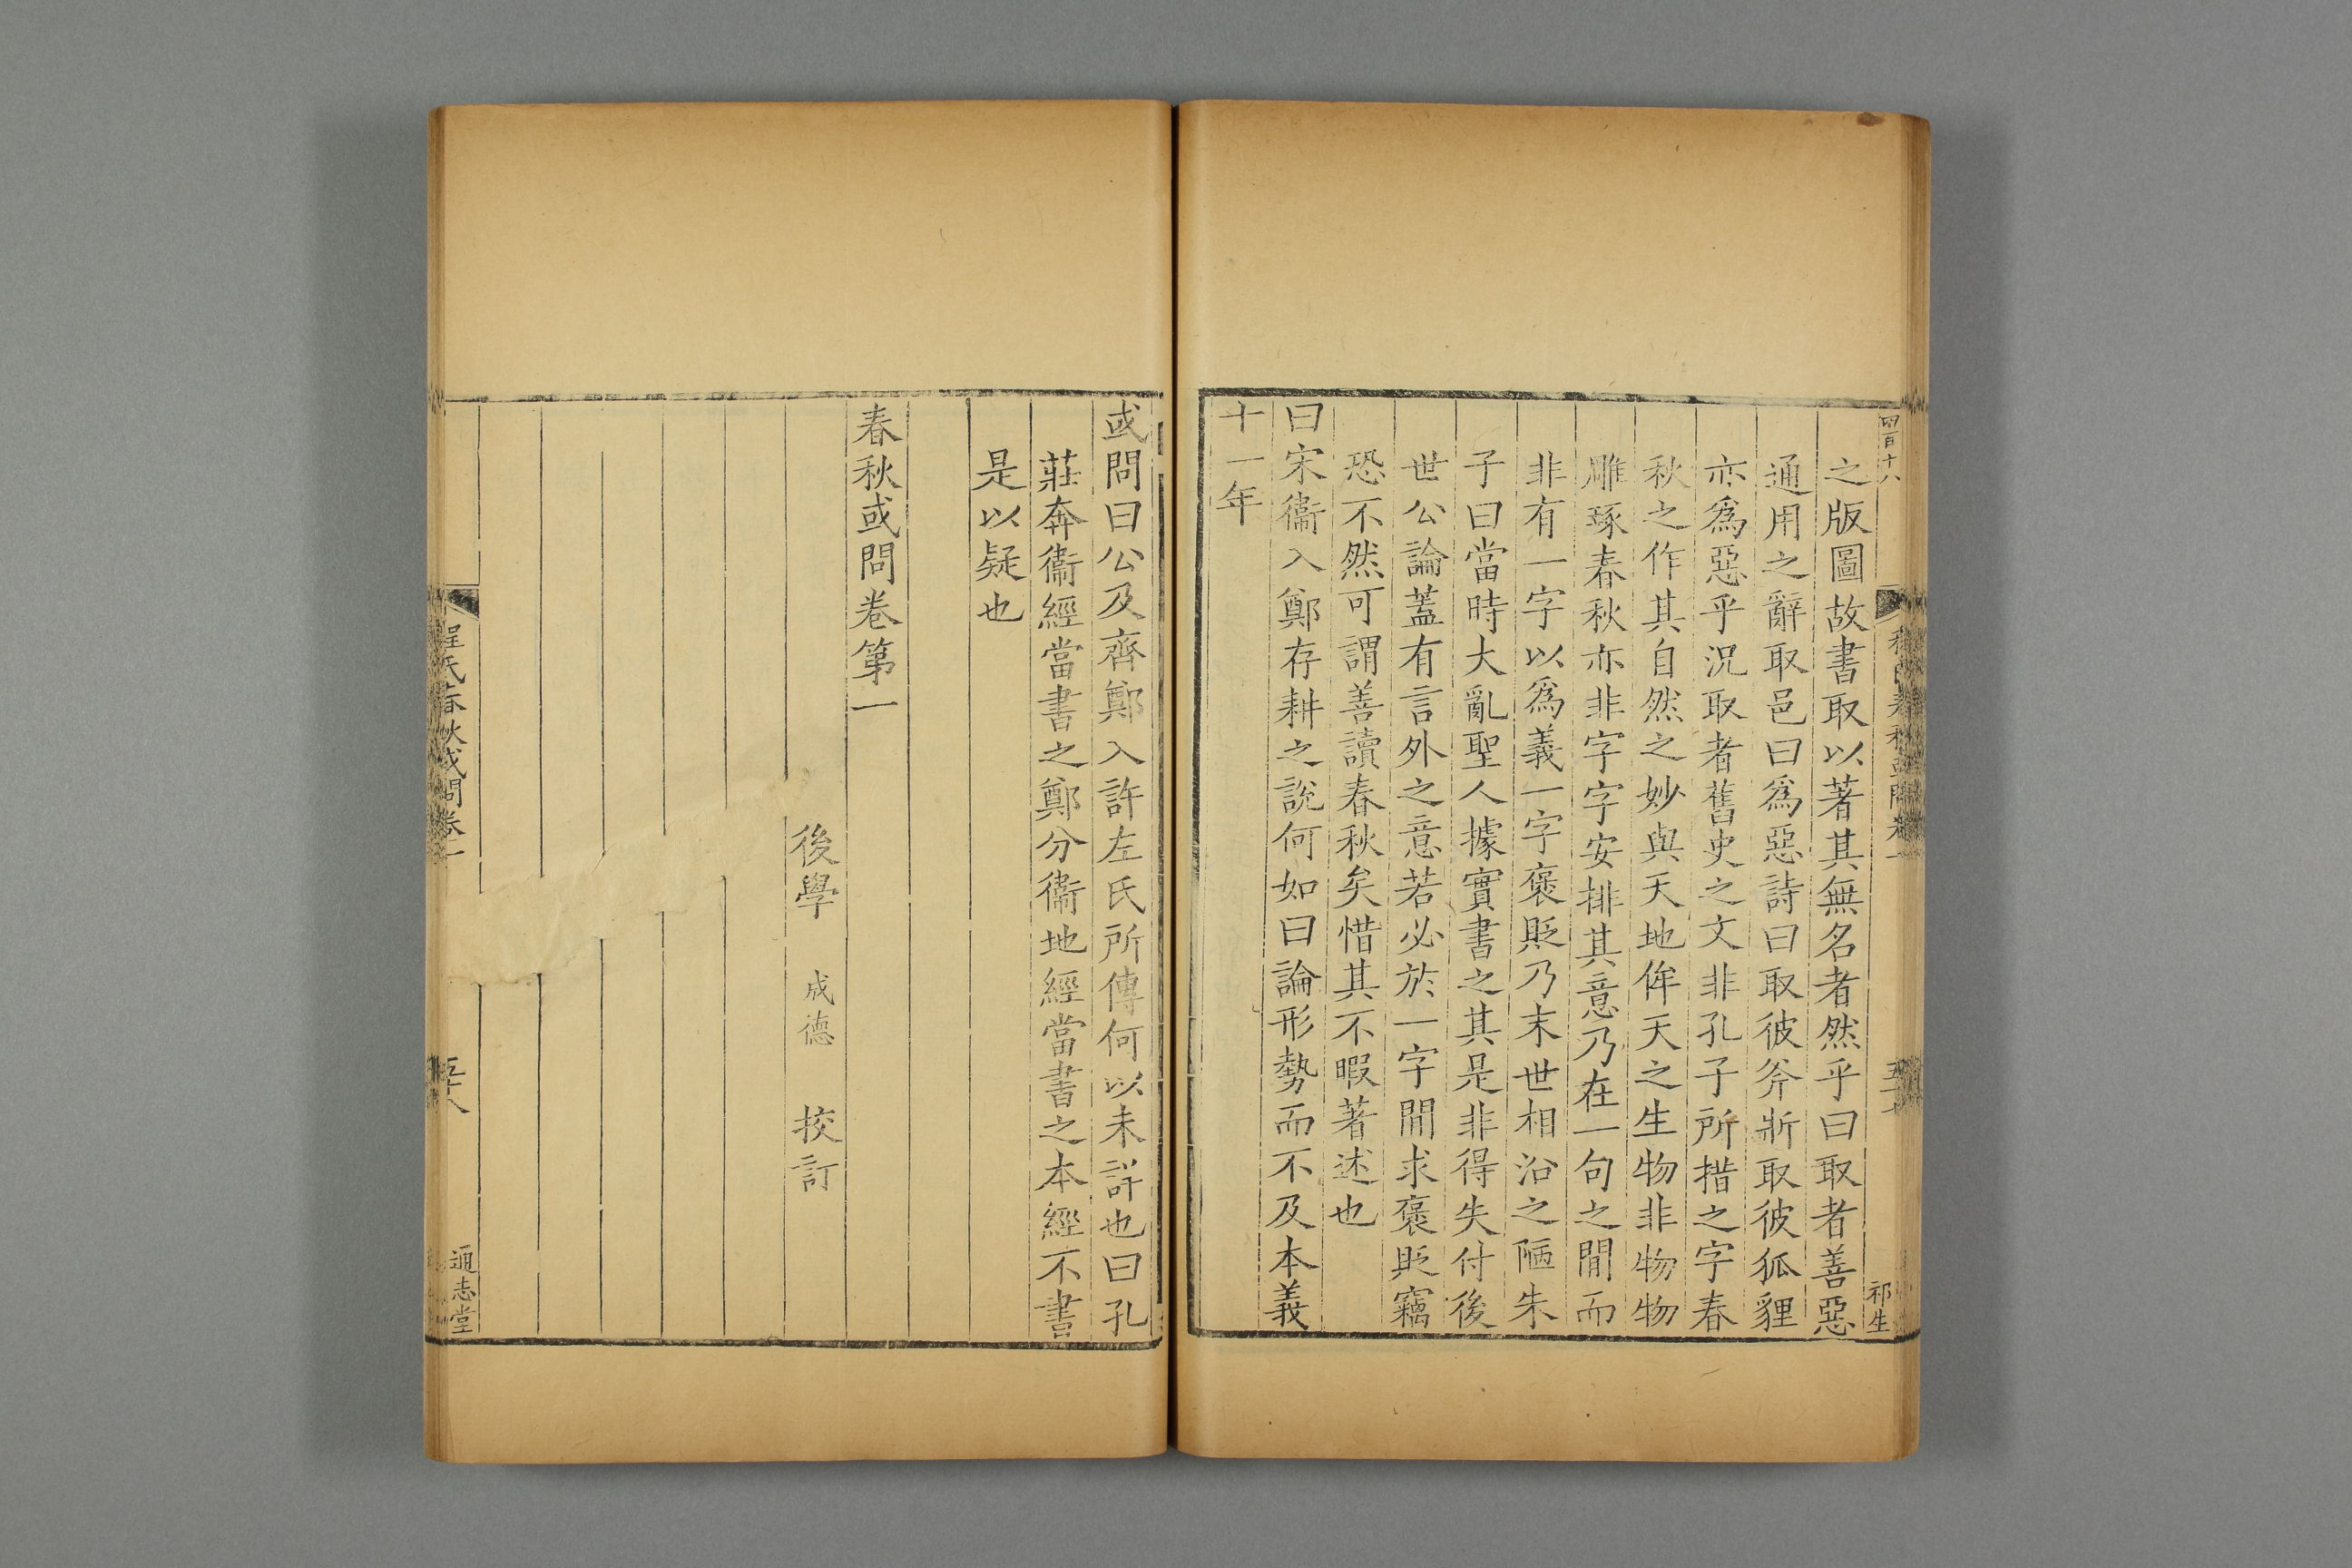 四百十八
之版圖故書取以著其無名者然乎曰取者善惡
通用之辭取邑曰爲惡詩曰取彼斧斨取彼狐貍
亦爲惡乎況取者舊史之文非孔子所措之字春
秋之作其自然之妙與天地侔天之生物非物物
雕琢春秋亦非字字安排其意乃在一句之閒而
非有一字以爲義一字褒貶乃末世相沿之陋朱
子曰當時大亂聖人據實書之其是非得失付後
世公論蓋有言外之意若必於一字閒求褒貶竊
恐不然可謂善讀春秋矣惜其不暇著述也
曰宋衞入鄭存耕之說何如曰論形勢而不及本義
十一年
祁生
或問曰公及齊鄭入許左氏所傳何以未詳也曰孔
莊奔衞經當書之鄭分衞地經當書之本經不書
是以疑也
春秋或問卷第一
後學 成德 挍訂
程氏春秋或問卷一
五十八
通志堂